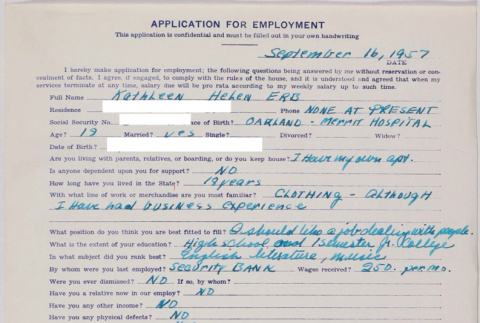 APPLICATION FOR EMPLOYMENT
This application is confidential and must be filled out in your own handwriting
September 16, 1957
DATE
I hereby make application for employment; the following questions being answered by me without reservation or con-
cealment of facts. I agree, if engaged, to comply with the rules of the house, and it is understood and agreed when my
services terminate at any time, salary due will be pro rata according to my weekly salary up to such time.
Full Name Kathleen Helen ERB
Residence Phone NONE AT PRESENT
Social Security No. ace of Birth? OAKLAND - MERRIT HOSPITAL
Age? 19 Married? yes Single? Divorced? Widow?
Date of Birth?
Are you living with parents, relatives, or boarding, or do you keep house? I Have my own apt.
Is anyone dependent upon you for support? NO
How long have you lived in the State? 19 years
With what line of work or merchandise are you most familiar? CLOTHING - ALTHOUGH
I HAVE HAD BUSINESS EXPERIENCE
What position do you think you are best fitted to fill? I should like a job dealing with people.
What is the extent of your education? High school, and 1 semester Jr. College
In what subject did you rank best? English literature, music
By whom were you last employed? SECURITY BANK Wages received? 250. per mo.
Were you ever dismissed? NO If so, by whom?
Have you a relative now in our employ? NO
Have you any other income? NO
Have you any physical defects? NO